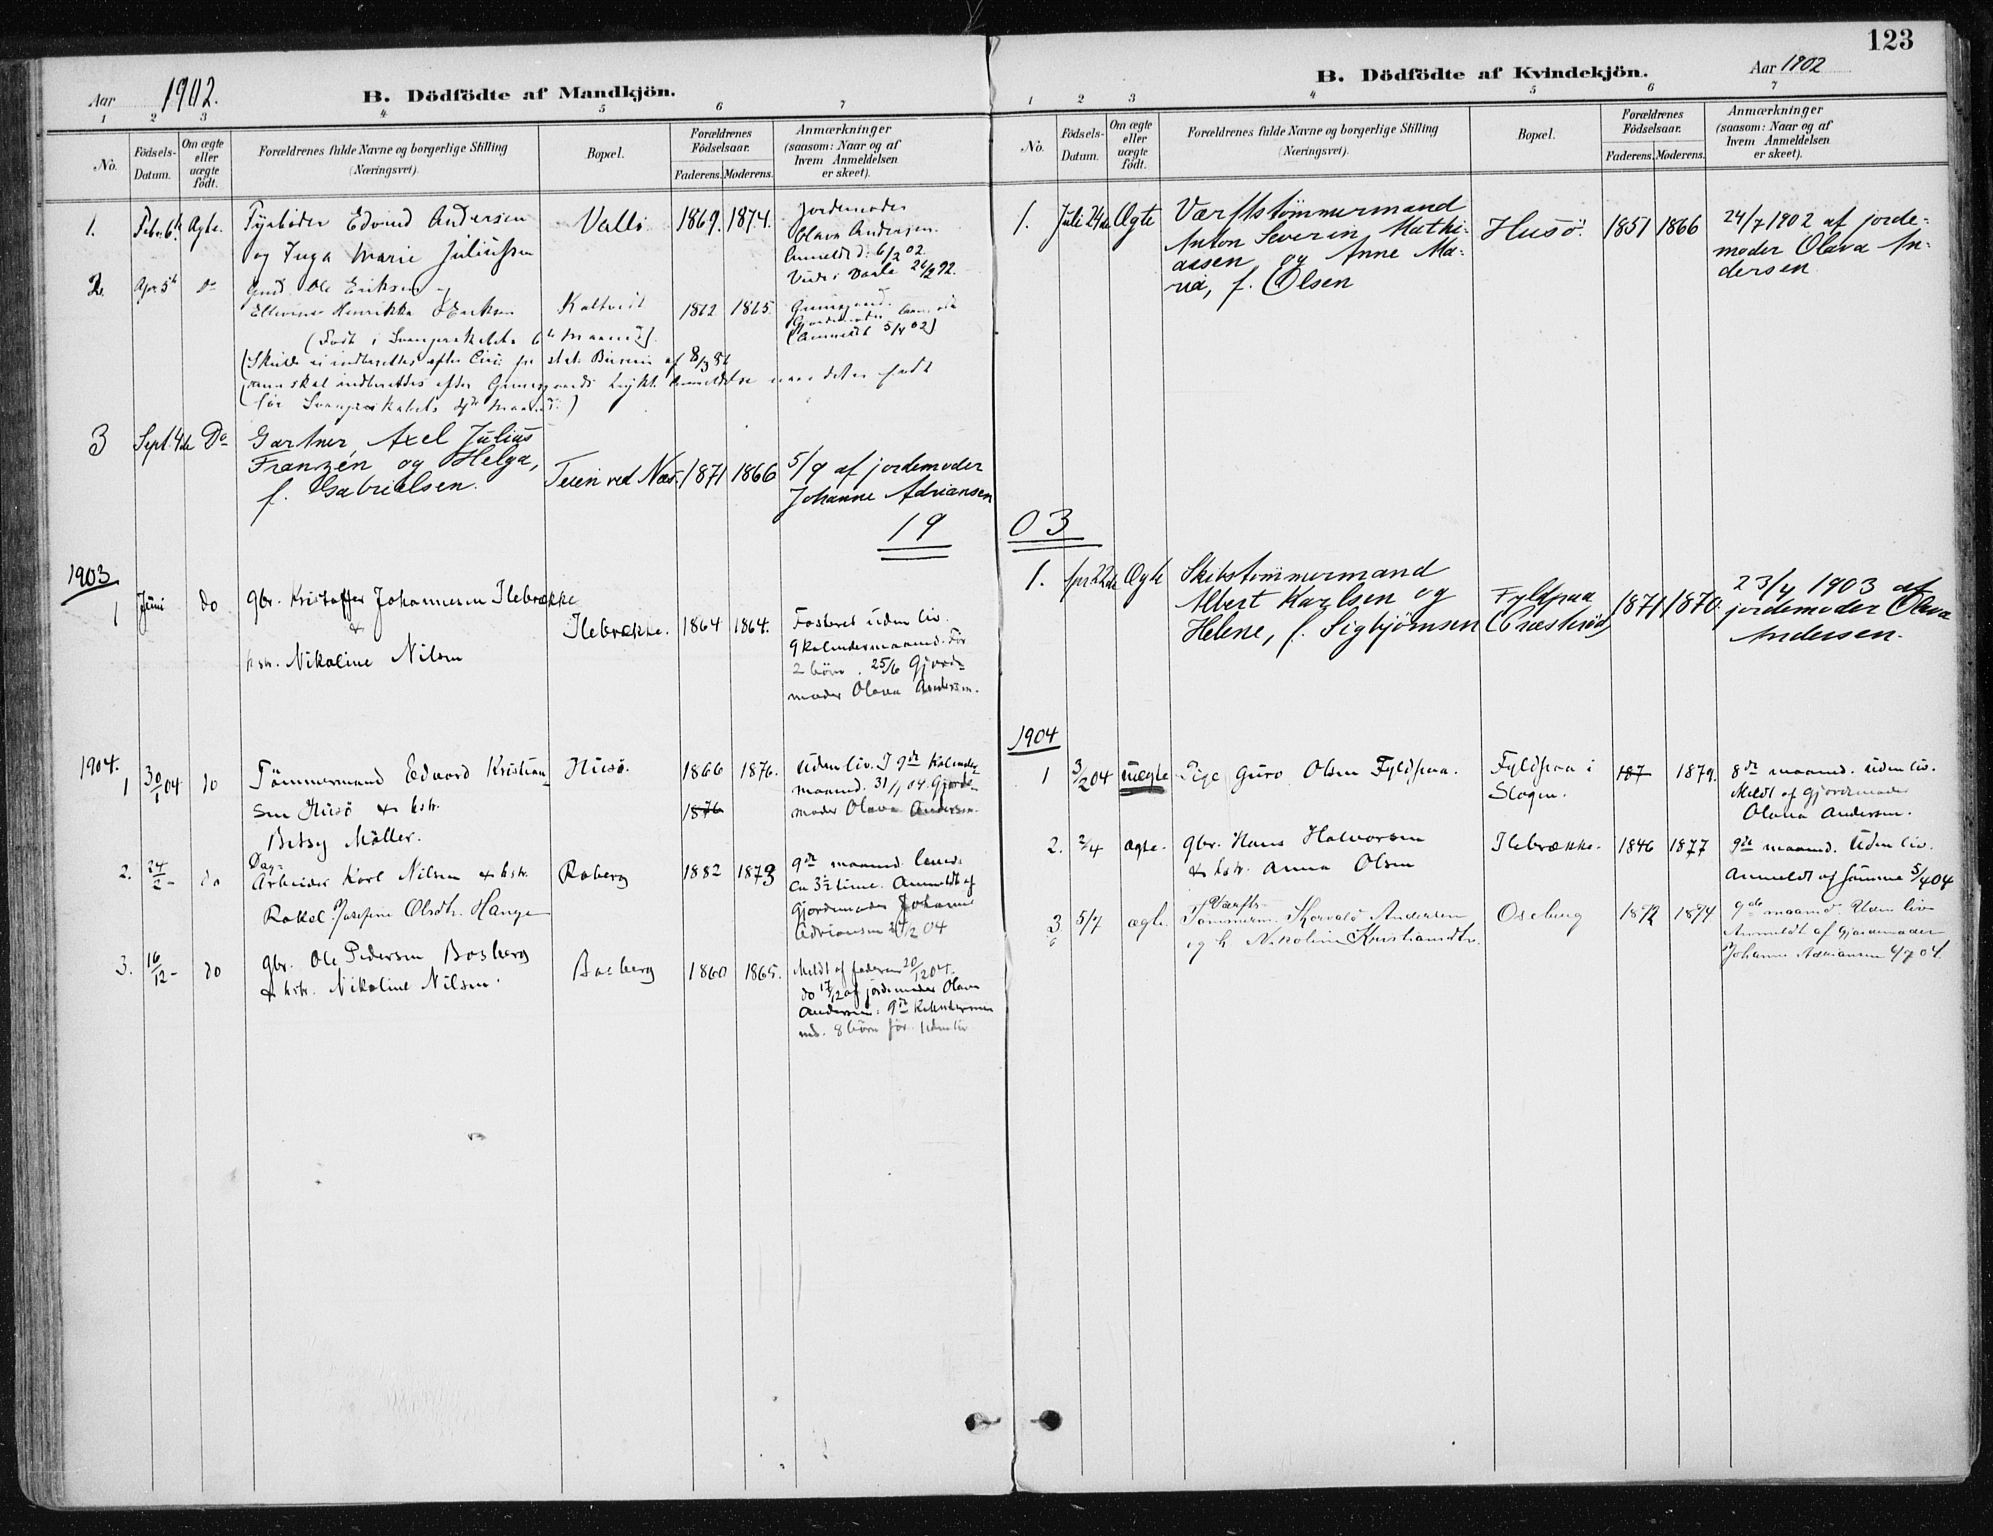 123
Aar 1902.
B. Dödfödte af Mandkjön.
1 2 3 4 5 6 7
No.
Födsels-
Datum.
Om ægte
eller
uægte
födt.
Forældrenes fulde Navne og borgerlige Stilling
(Næringsvei).
Bopæl.
Forældrenes
Födselsaar.
Faderens. Moderens.
Anmærkninger
(saasom: Naar og af
hvem Anmeldelsen
er skeet).
1. Febr. 6te Ægte. Edvind Andersen
og Inga Marie Juliussen
Vallö 1869. 1874.
Jordemoder
Olava Andersen.
Anmeldt d. 6/2 02.
2. Apr 5te do
Gmd. Ole Eriksen
Henrikke Eriksen
1862 1865.
(Anmeldt 5/4 02)
3 Sept. 4de Do
Gartner Axel Julius
Franzén og Helga,
f. Gabrielsen.
Teien ved Næs. 1871 1866
5/9 af jordemoder
Johanne Adriansen
19
1903
1 Juni do
gbr. Kristoffer Johannesen Ilebrække
&
hstr. Nikoline Nilsen
Ilebrække. 1864 1864.
Fosteret uden liv.
9 kalendermaaned. Før
2 børn. 25/6 Gjord-
moder Olava Andersen.
1904.
1 30/1 04 do
Tömmermand Edvard Kristian-
sen Husö & hstr.
Betsy Möller.
Husö. 1866 1876.
1876
Uden liv. I 9de Kalender
maaned. 31/1 04. Gjord-
moder Olava Andersen.
2. 24/2 - do
Dag-
Arbeider Karl Nilsen & hstr.
Rakel Josefine Olsdtr. Hange
Roberg 1882 1873
9de maaned. levede
ca 3½ time. Anmeldt af
Gjordemoder Johanne
Adriansen 04
3. 16/12 - do
gbr. Ole Pedersen Basberg
& hstr. Nikoline Nilsen.
Basberg 1860 1865.
Meldt af faderen 20/12 04.
do 17/12 af jordemoder Olava
Andersen: 9de Kalenderma
ned. 8 børn før. Uden liv
Aar 1902
B. Dödfödte af Kvindekjön.
1 2 3 4 5 6 7
No.
Födsels-
Datum.
Om ægte
eller
uægte
födt.
Forældrenes fulde Navne og borgerlige Stilling
(Næringsvei).
Bopæl.
Forældrenes
Födselsaar.
Faderens. Moderens.
Anmærkninger
(saasom: Naar og af
hvem Anmeldelsen
er skeet).
1. Juli 24de Ægte
Værftstömmermand
Anton Severin Mathi-
assen og Anne Ma-
ria, f. Olsen
Husö. 1851 1866
24/7 1902 af jorde-
moder Olava An-
dersen
03
1. Apr 22de Ægte
Skibstömmermand
Albert Karlsen og
Helene, f. Sigbjörnsen
Fyldpaa
(Præsterød)
1871 1870.
23/4 1903 af
jordemoder Olava
Andersen.
1904
1 3/2 04 uægte
Pige Guro Olsen Fyldpaa.
Fyldpaa i
Slagen.
187 1879.
8de maaned. uden liv.
Meldt af Gjordemoder
Olava Andersen.
2. 2/4 ægte.
gbr. Hans Halvorsen
& hstr. Anna Olsen
Ilebrække. 1846 1877
9de maaned. Uden liv.
Anmeldt af samme 5/4 04
3 5/7 ægte.
Værfts-
Tömmerm. Thorvald Andersen
og h. Nikoline Kristiansdtr.
Oseberg 1872 1874
9de maaned. Uden liv
Anmeldt af Gjordemoder
Johanne Adriansen 04.